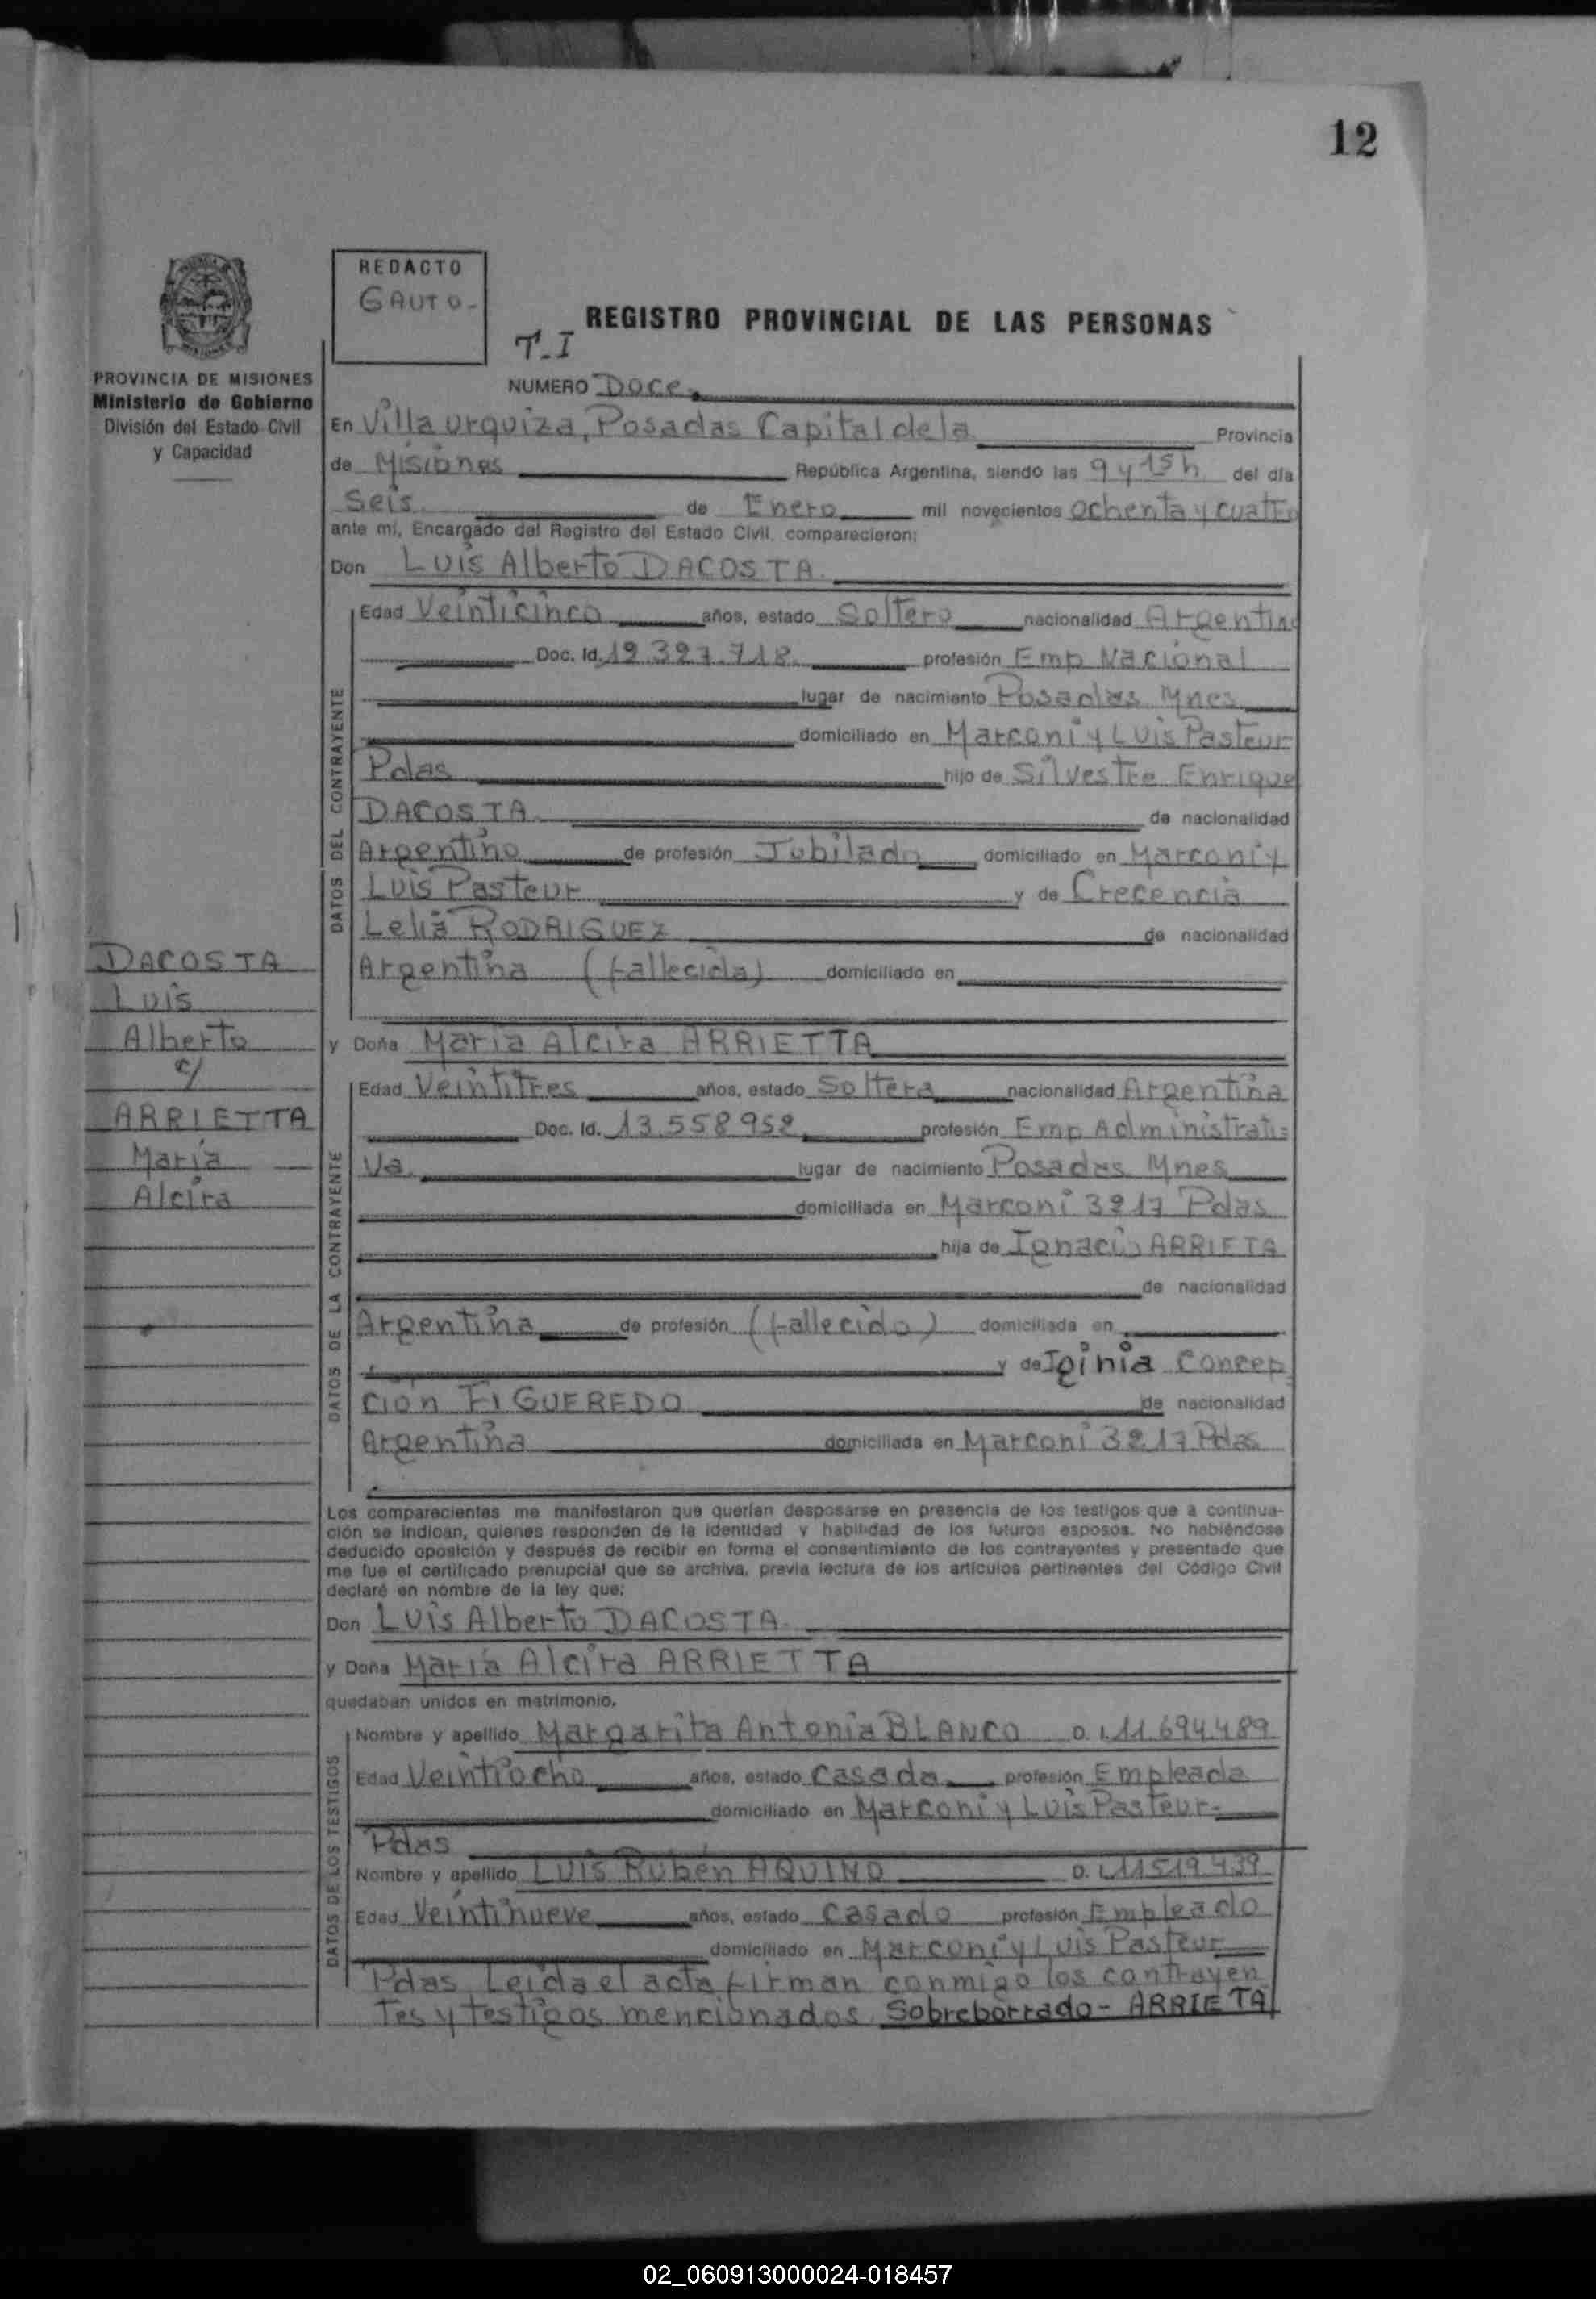 12
REDACTO
GAUTO-
REGISTRO PROVINCIAL DE LAS PERSONAS
T-I
PROVINCIA DE MISIONES
Ministerio de Gobierno
División del Estado Civil
y Capacidad
NUMERO Doce
En Villa Urquiza, Posadas Capital de la Provincia
de Misiones República Argentina, siendo las 9 y 15 h del día
Seis de Enero mil novecientos ochenta y cuatro
ante mí, Encargado del Registro del Estado Civil, comparecieron:
Don Luis Alberto DACOSTA
DATOS DEL CONTRAYENTE
Edad Veinticinco años, estado Soltero nacionalidad Argentino
Doc. Id. 12.397.718 profesión Emp Nacional
lugar de nacimiento Posadas Mnes
domiciliado en Marconi y Luis Pasteur
Pdas hijo de Silvestre Enrique
DACOSTA de nacionalidad
Argentino de profesión Jubilado domiciliado en Marconi y
Luis Pasteur y de Crecencia
Lelia RODRIGUEZ de nacionalidad
Argentina (fallecida) domiciliado en
DACOSTA
Luis
Alberto
c/
ARRIETTA
Maria
Alcira
y Doña Maria Alcira ARRIETTA
DATOS DE LA CONTRAYENTE
Edad Veintitres años, estado Soltera nacionalidad Argentina
Doc. Id. 13.558952 profesión Emp Administrati=
va lugar de nacimiento Posadas Mnes
domiciliada en Marconi 3217 Pdas
hija de Ignacio ARRIETA
de nacionalidad
Argentina de profesión (fallecido) domiciliada en
y de Iginia Concep
cion FIGUEREDO de nacionalidad
Argentina domiciliada en Marconi 3217 Pdas
Los comparecientes me manifestaron que querían desposarse en presencia de los testigos que a continua-
ción se indican, quienes responden de la identidad y habilidad de los futuros esposos. No habiéndose
deducido oposición y después de recibir en forma el consentimiento de los contrayentes y presentado que
me fue el certificado prenupcial que se archiva, previa lectura de los artículos pertinentes del Código Civil
declaré en nombre de la ley que:
Don Luis Alberto DACOSTA
y Doña Maria Alcira ARRIETTA
quedaban unidos en matrimonio.
DATOS DE LOS TESTIGOS
Nombre y apellido Margarita Antonia BLANCO D.I. 11.694.489
Edad Veintiocho años, estado Casada profesión Empleada
domiciliado en Marconi y Luis Pasteur-
Pdas
Nombre y apellido Luis Rubén AQUINO D.I. 11519439
Edad Veintinueve años, estado Casado profesión Empleado
domiciliado en Marconi y Luis Pasteur
Pdas Leida el acta firman conmigo los contrayen
tes y testigos mencionados Sobreborrado- ARRIETA
02_060913000024-018457